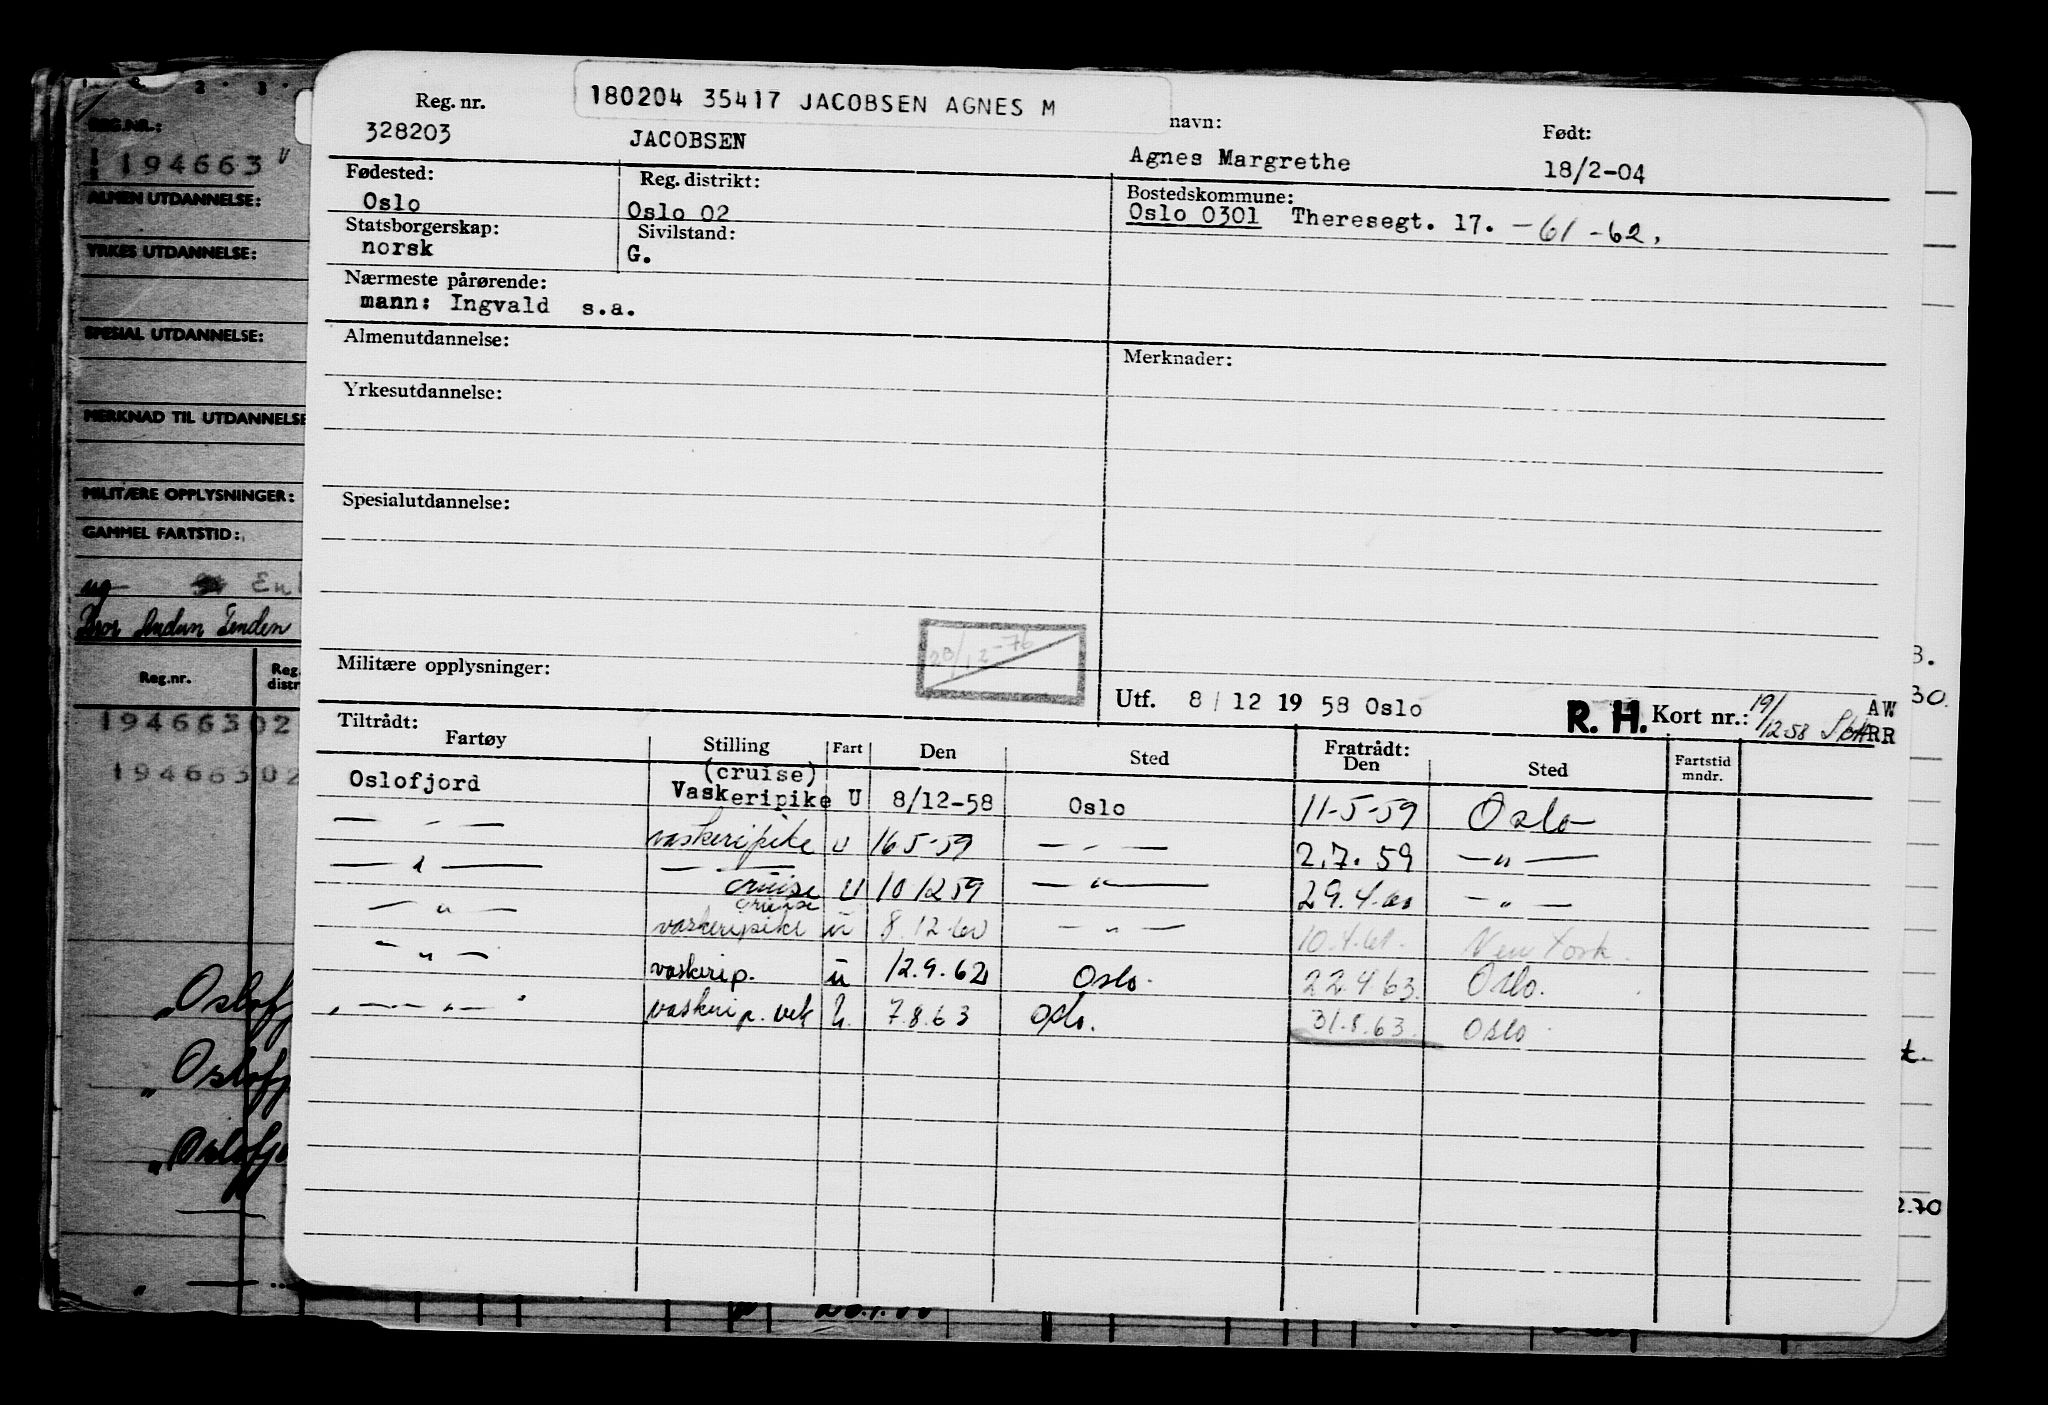 180204 35417 JACOBSEN AGNES M
Reg. nr.
328203
JACOBSEN
navn:
Agnes Margrethe
Født:
18/2-04
Fødested:
Oslo
Reg. distrikt:
Oslo 02
Bostedskommune:
Oslo 0301 Theresegt. 17. -61-62.
Statsborgerskap:
norsk
Sivilstand:
G.
Nærmeste pårørende:
mann: Ingvald s.a.
Almenutdannelse:
Merknader:
Yrkesutdannelse:
Spesialutdannelse:
Militære opplysninger:
20/12-76
Utf. 8/12 19 58 Oslo
R. H. Kort nr.: 19/12 58
AW
RR
Tiltrådt:
Fratrådt:
Fartøy Stilling Fart Den Sted Den Sted Fartstid mndr.
Oslofjord (cruise) Vaskeripike U 8/12-58 Oslo 11-5-59 Oslo
— - — vaskeripike u 16 5-59 — - — 2.7. 59 — " —
— " — — cruise U 10 12 59 — " — 29.4.60 — " —
— " — cruise vaskeripike u 8.12.60 — " — 10.4.61. New York.
" — " — vaskerip. u 12.9.62 Oslo. 22.4 63. Oslo.
" — — " — " vaskerip. vik U. 7.8.63 Oslo. 31.8.63. Oslo
REG.NR.:
194663 U
ALMEN UTDANNELSE:
YRKES UTDANNELSE:
SPESIAL UTDANNELSE:
MERKNAD TIL UTDANNELSE
MILITÆRE OPPLYSNINGER:
GAMMEL FARTSTID:
ug
Reg.nr. Reg. distr
194663 02
194663 02
" Oslofj
" Oslofj
" Oslofjo
3.
30.
t.
2.70